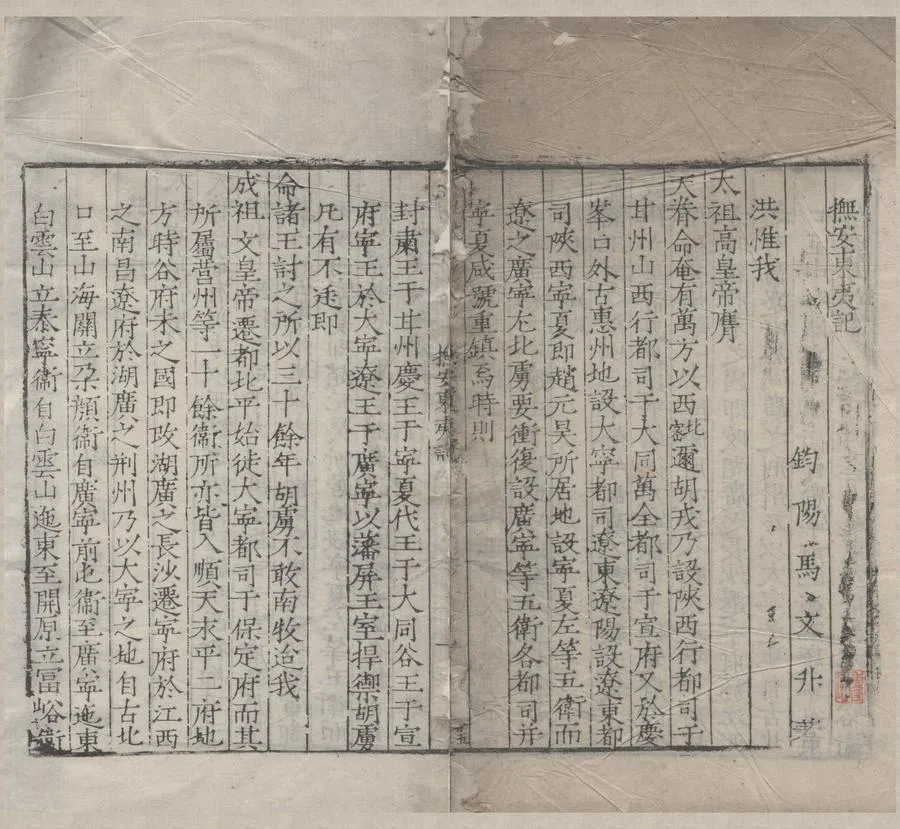 撫安東夷記
鈞陽馬文升著
洪惟我
太祖高皇帝膺
天眷命奄有萬方以西北密邇胡戎乃設陝西行都司于
甘州山西行都司于大同萬全都司于宣府又於慶
峯口外古惠州地設大寧都司遼東遼陽設遼東都
司陝西寧夏即趙元昊所居地設寧夏左等五衛而
遼之廣寧尢北虜要衝復設廣寧等五衛各都司并
寧夏咸號重鎮焉時則
撫安東夷記
封肅王于甘州慶王于寧夏代王于大同谷王于宣
府寧王於大寧遼王于廣寧以藩屏王室捍禦胡虜
凡有不迋即
命諸王討之所以三十餘年胡虜不敢南牧迨我
成祖文皇帝遷都北平始徒大寧都司于保定府而其
所屬營州等一十餘衛所亦皆入順天永平二府地
方時谷府未之國即改湖廣之長沙遷寧府於江西
之南昌遼府於湖廣之荆州乃以大寧之地自古北
口至山海關立朶顔衛自廣寧前屯衛至廣寧迤東
白雲山立泰寧衛自白雲山迤東至開原立冨峪衛